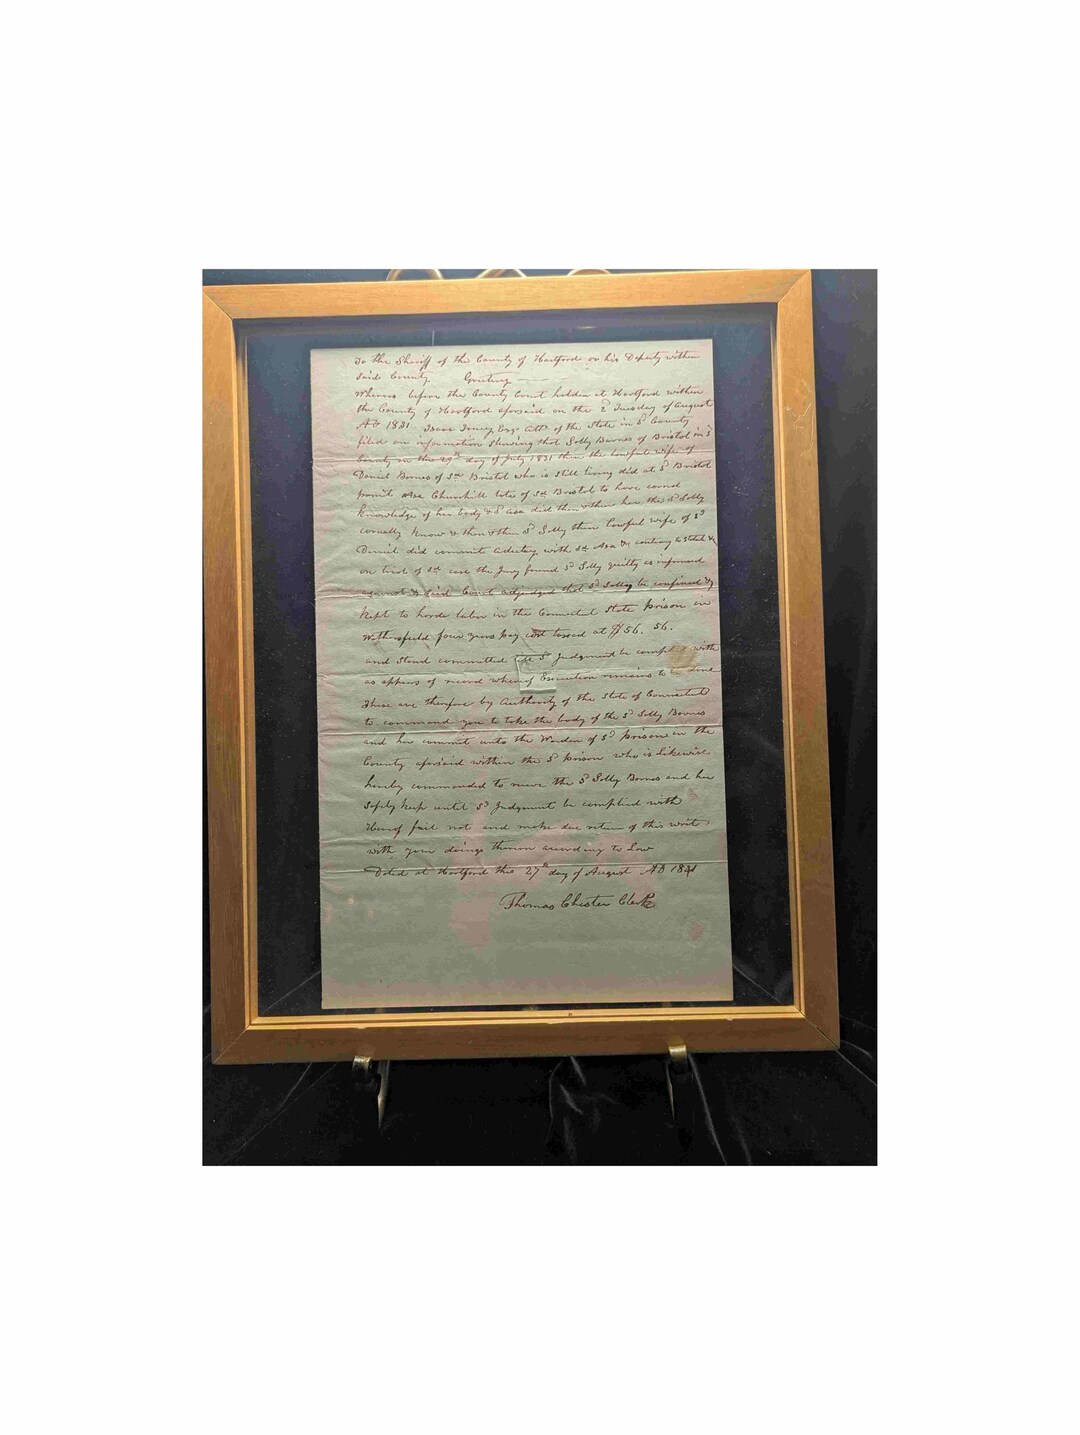 To the Sheriff of the County of Hartford or his Deputy within
said County Greeting
Whereas before the County Court holden at Hartford within
the County of Hartford aforesaid on the 2d Tuesday of August
AD 1831 Isaac Toucey Esqr Atty of the State in sd County
filed an information shewing that Solly Barnes of Bristol in sd
County on the 29th day of July 1831 then the lawful wife of
Daniel Barnes of sd Bristol who is still living did at sd Bristol
permit Asa Churchill late of sd Bristol to have carnal
knowledge of her body & sd Asa did then & there her the sd Solly
carnally know & then & there sd Solly then lawful wife of sd
Daniel did commit adultery with sd Asa & contrary to Statt &
on trial of sd case the Jury found sd Solly guilty as informed
against & said Court adjudged that sd Solly be confined &
kept to harde labor in the Connectict State prison in
Wethersfield four years pay cost taxed at $56. 56.
and stand committed till sd Judgment be complied with
as appears of record whereof Execution remains to done
These are therefore by Authority of the State of Connecticut
to command you to take the body of the sd Solly Barnes
and her commit unto the Warden of sd prison in the
County aforsaid within the sd prison who is likewise
hereby commanded to receive the sd Solly Barnes and her
safely keep until sd Judgment be complied with
Hereof fail not and make due return of this writ
with your doings thereon according to Law
Dated at Hartford this 27th day of August AD 1831
Thomas Chester Clerk